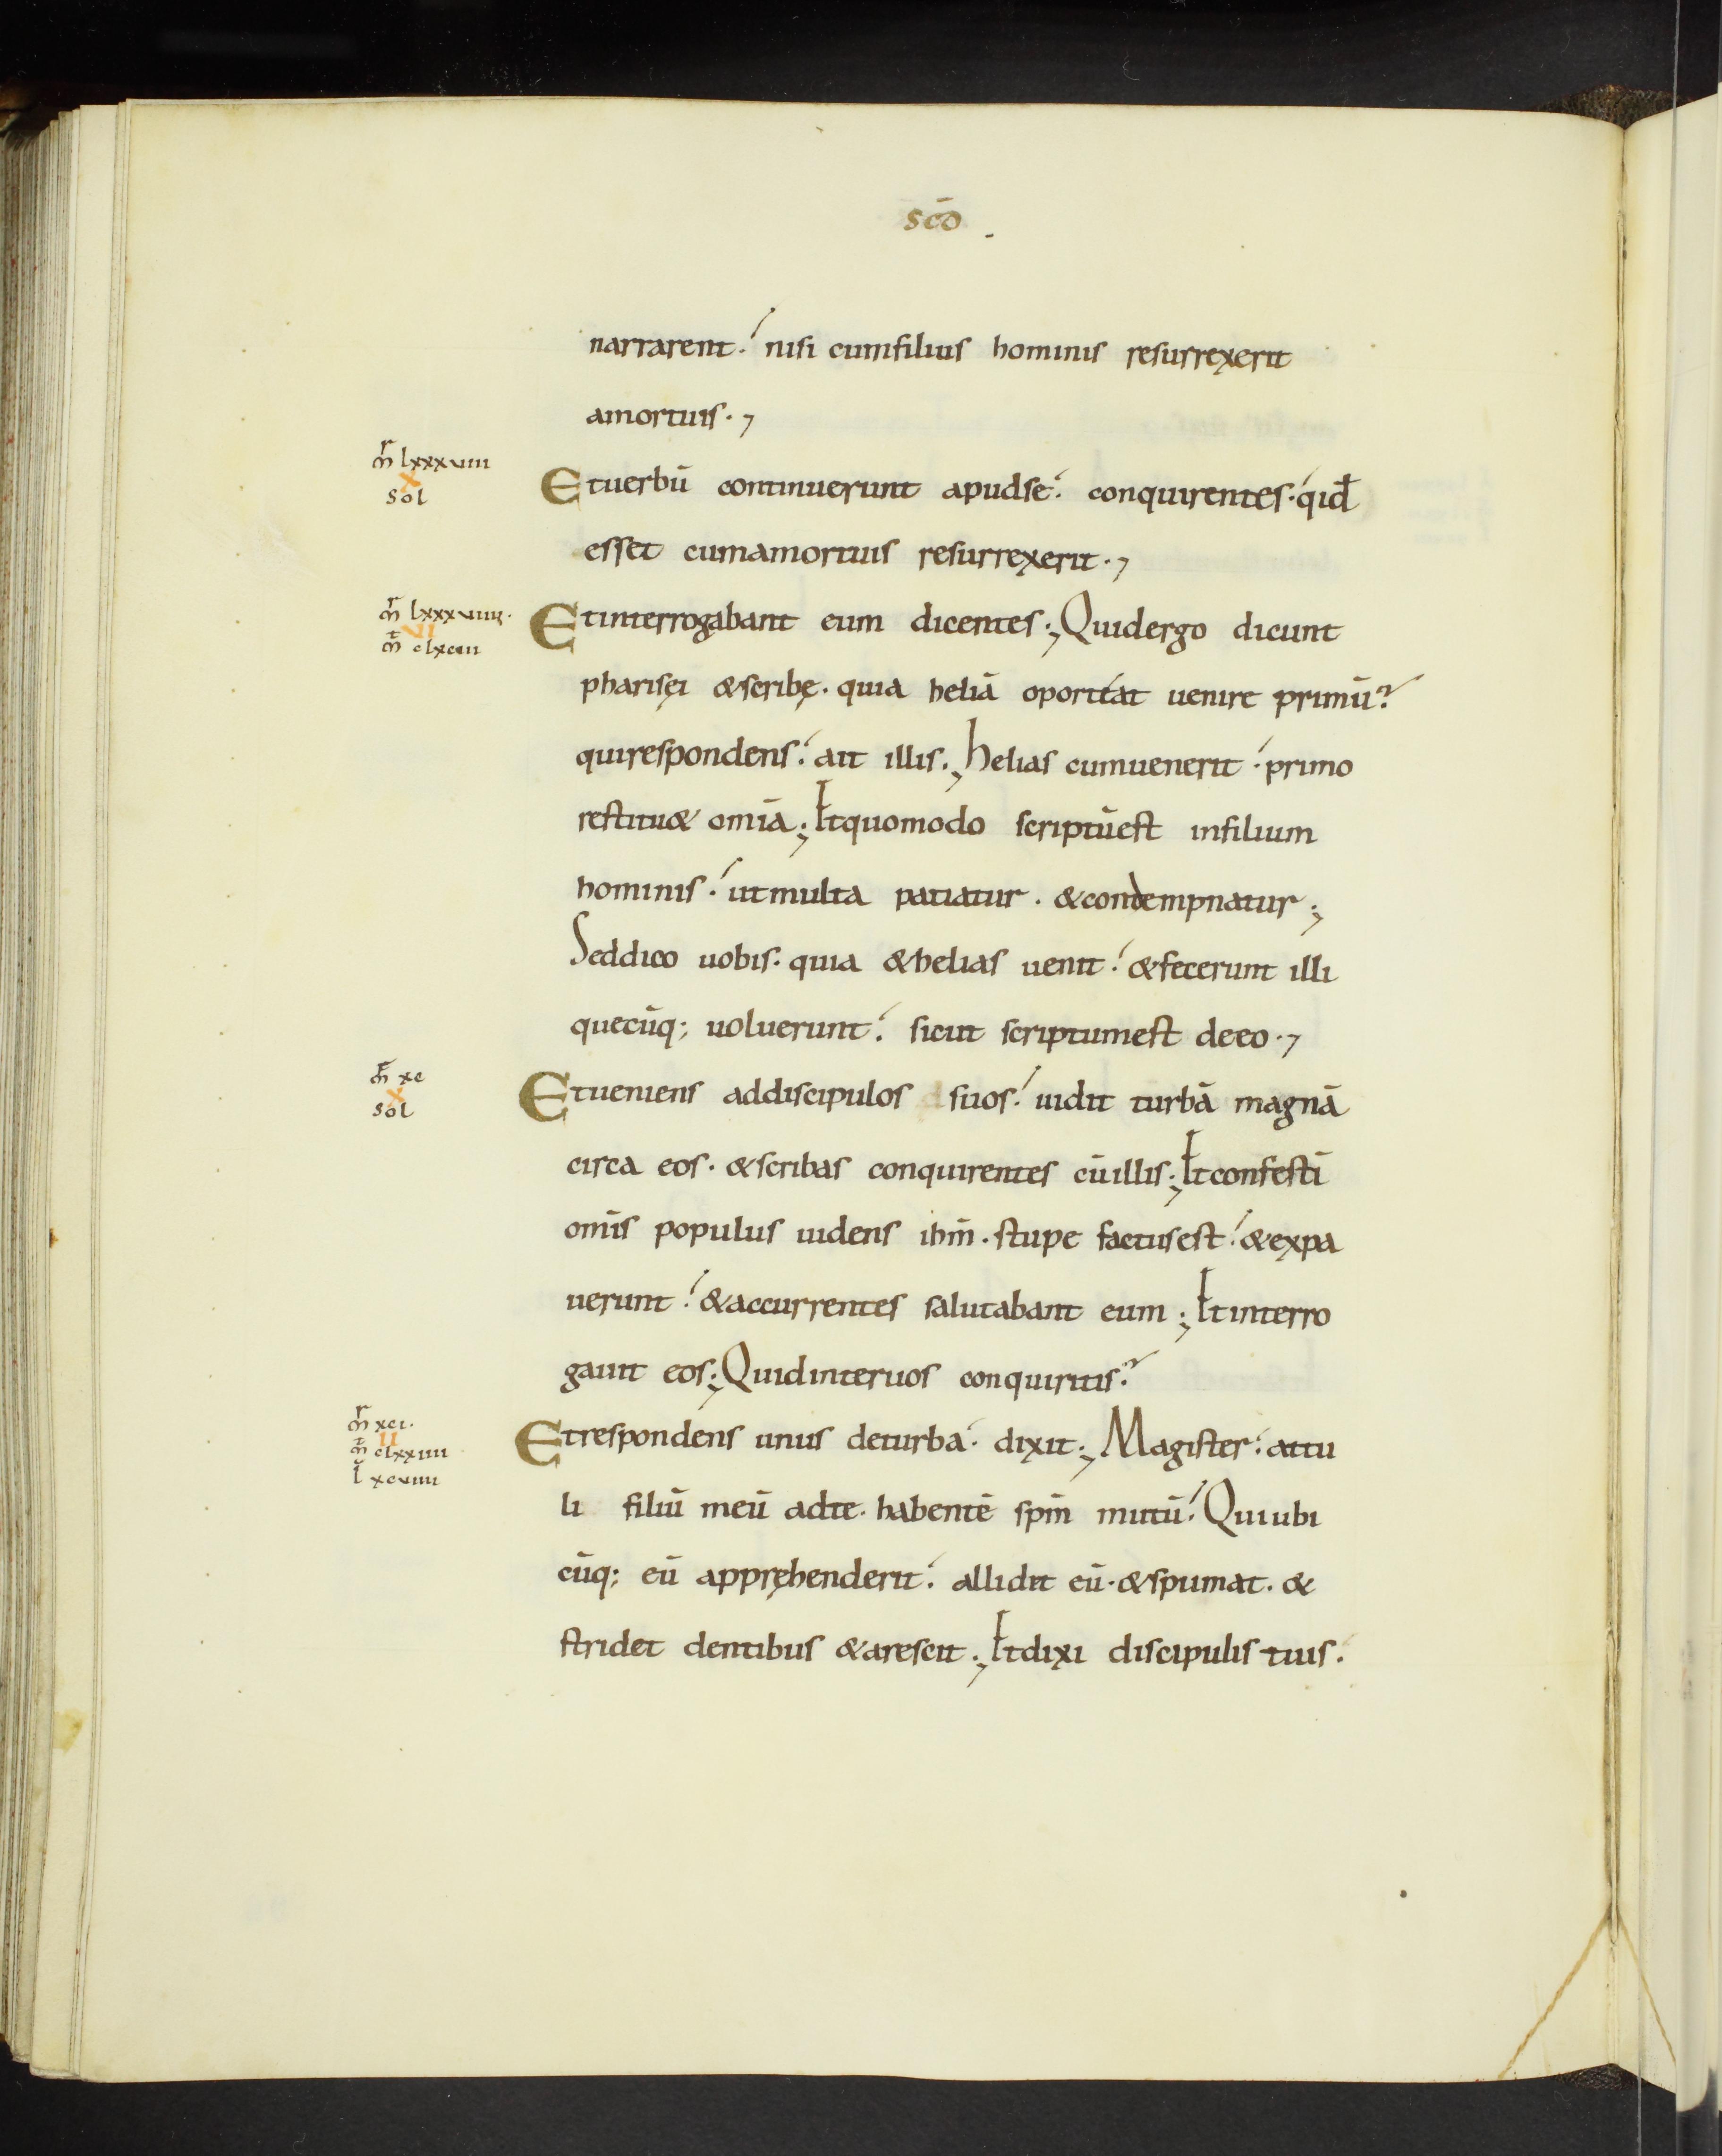 scō
narrarent. nisi cumfilius hominis resurrexerit
amortuis.
mr lxxxviii
X
Etuerbū continuerunt apudse. conquirentes. qid̄
sol
esset cumamortuis resurrexerit.
mr lxxxviiii.
VI
Etinterrogabant eum dicentes; Quidergo dicunt
mt clxxiii
pharisęi &scribę. quia heliā oporteat uenire primū?
quirespondens. ait illis; Helias cumuenerit. primo
restitu& omīa; Etquomodo scriptūest infilium
hominis. utmulta patiatur. &condempnatur;
Seddico uobis. quia &helias uenit. &fecerunt illi
quecūq; uoluerunt. sicut scriptumest deeo.
mr xc
X
Etueniens addiscipulos suos. uidit turbā magnā
sol
circa eos. &scribas conquirentes cūillis; Etconfestī
omīs populus uidens ihm̄. stupe factusest. &expa
uerunt. &accurrentes salutabant eum; Etinterro
gauit eos; Quidinteruos conquiritis?
mr xci.
II
Etrespondens unus deturba. dixit; Magister. attu
mt clxxiiii
l xcviiii
li filiū meū adte. habentē spm̄ mutū. Quiubi
cūq; eū apprehenderit. allidit eū. &spumat. &
stridet dentibus &arescit; Etdixi discipulis tuis.